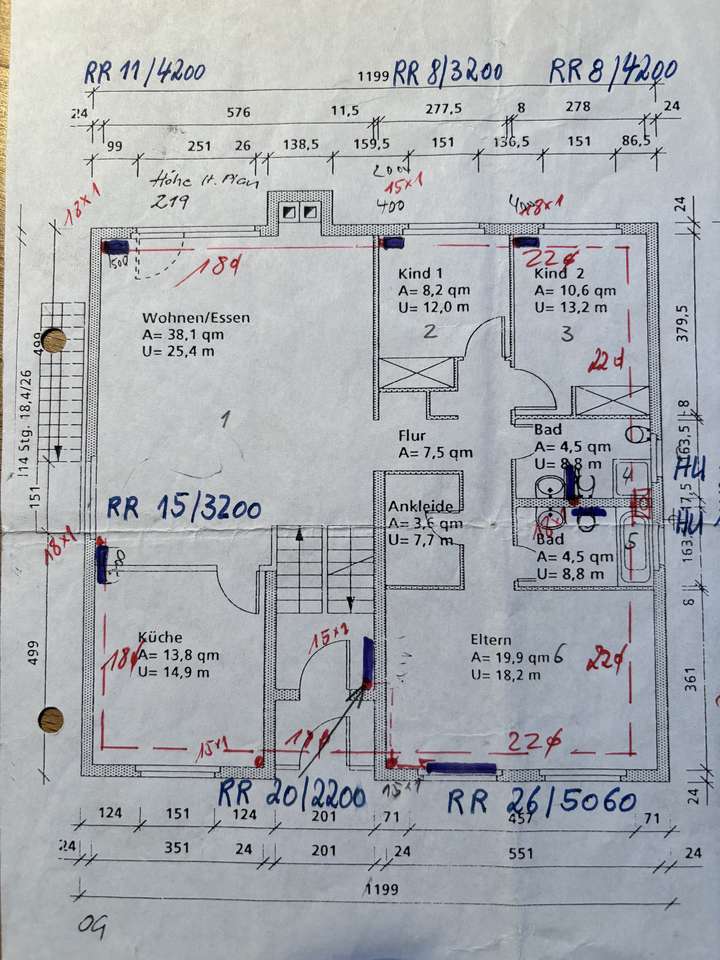 RR 11/4200
1199
RR 8/3200
RR 8/4200
24
576
11,5
277,5
8
278
24
99
251
26
138,5
159,5
151
136,5
151
86,5
Höhe lt. Plan
219
18x1
15x1
400
18x1
24
1500
18¢
22¢
Kind 1
A= 8,2 qm
U= 12,0 m
2
Kind 2
A= 10,6 qm
U= 13,2 m
3
Wohnen/Essen
A= 38,1 qm
U= 25,4 m
1
22¢
379,5
499
14 Stg. 18,4/26
151
Flur
A= 7,5 qm
Bad
A= 4,5 qm
U= 8,8 m
4
8
163,5
17,5
HU
RR 15/3200
Ankleide
A= 3,6 qm
U= 7,7 m
18x1
Bad
A= 4,5 qm
U= 8,8 m
5
HU
163,5
8
Küche
A= 13,8 qm
U= 14,9 m
18¢
15x1
Eltern
A= 19,9 qm 6
U= 18,2 m
22¢
499
361
15x1
18¢
22¢
RR 20/2200
15x1
RR 26/5060
24
124
151
124
201
71
457
71
24
351
24
201
24
551
24
1199
OG